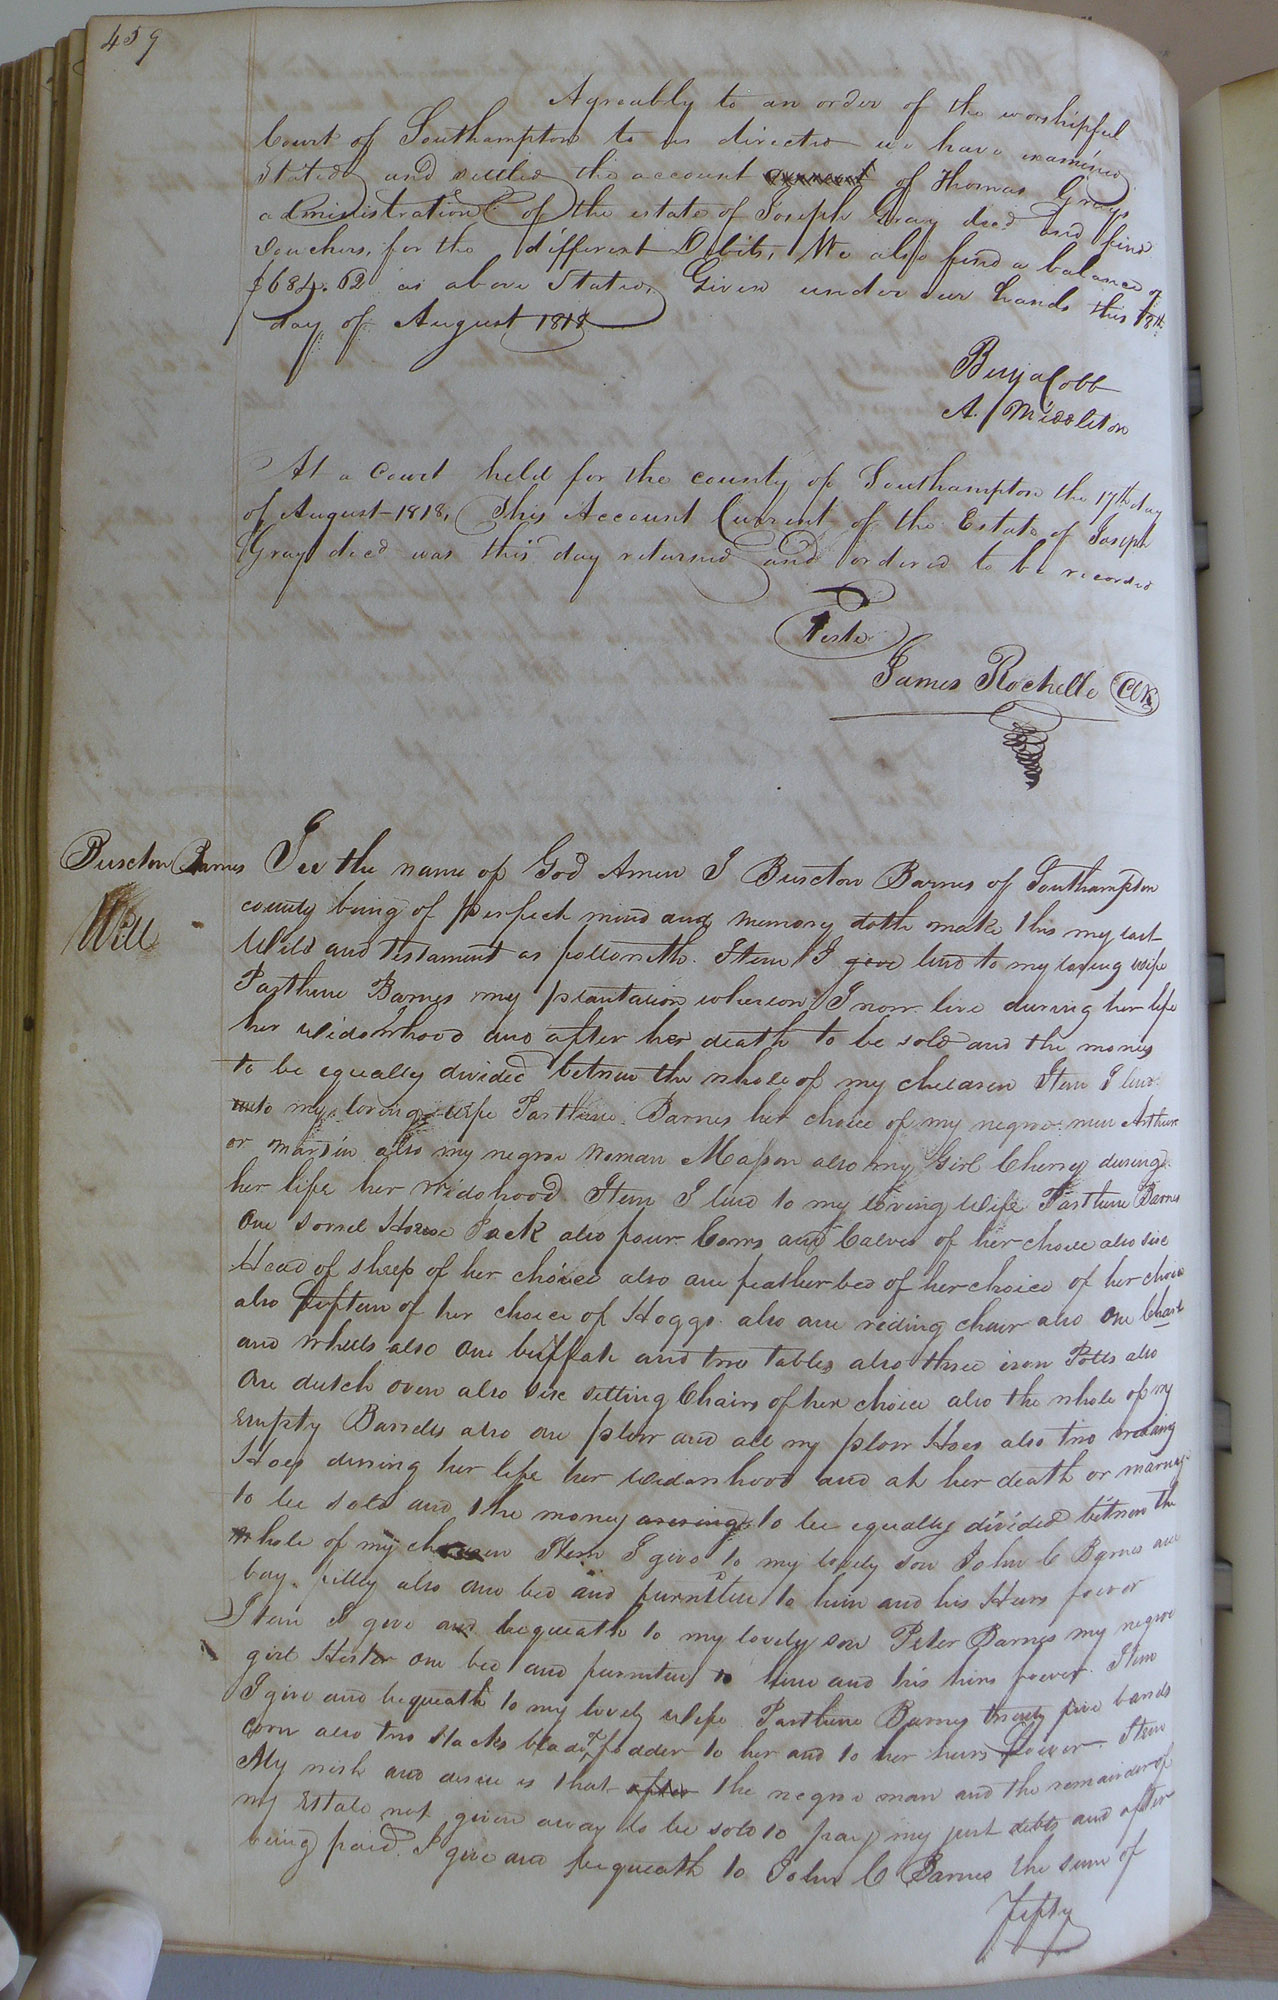 459
Agreeably to an order of the worshipful
Court of Southampton to us directed we have examined
Stated and settled the account of Thomas Grays
administration of the estate of Joseph Gray decd and find
Vouchers, for the different Debits, We also find a balance of
$684.62 as above Stated Given under our hands this 18th
day of August 1818
Benja Cobb
A. Middleton
At a Court held for the county of Southampton the 17th day
of August 1818, This Account Current of the Estate of Joseph
Gray decd was this day returned and ordered to be recorded
Teste
James Rochelle Clk
Burcton Barnes
Will
In the name of God Amen I Burcton Barnes of Southampton
county being of perfect mind and memory doth make this my last
Will and Testament as followeth. Item I give lend to my loving wife
Parthene Barnes my plantation whereon I now live during her life
her widowhood and after her death to be sold and the money
to be equally divided between the whole of my children Item I lend
unto my loving wife Parthene Barnes her choice of my negroe men Arthur
or martin also my negroe woman Mason also my Girl Cherry during
her life her widohood Item I lend to my loving Wife Parthene Barnes
One sorrel Horse Jack also four Cows and Calves of her choice also six
Head of sheep of her choice also one feather bed of her choice of her choice
also fifteen of her choice of Hoggs also one riding chair also One Chart
and wheels also One buffat and two tables also three iron Potts also
One dutch oven also six setting Chairs of her choice also the whole of my
Empty Barrells also one plow and all my plow Hoes also two weeding
Hoes during her life her widowhood and at her death or marriage
to be sold and the money areising to be equally divided between the
whole of my children Item I give to my lovely son John C Barnes one
bay filley also One bed and furniture to him and his Heirs forever
Item I give and bequeath to my lovely son Peter Barnes my negroe
girl Hester one bed and furniture to him and his heirs forever. Item
I give and bequeath to my lovely Wife Parthene Barnes twenty five barrels
corn also two stacks blade fodder to her and to her heirs forever. Item
My wish and desire is that after the negroe man and the remainder of
my Estate not given away to be sold to pay my just debts and after
being paid. I give and bequeath to John C Barnes the sum of
fifty